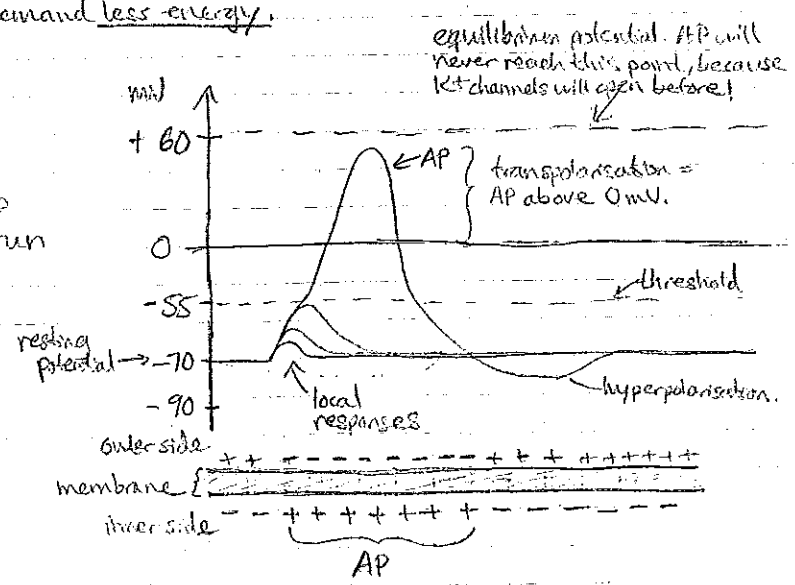 demand less energy.
equilibrium potential. AP will
never reach this point, because
K+ channels will open before!
mV
+ 60
AP
transpolarisation =
AP above 0mV.
run
0
threshold
-55
resting
potential
-70
hyperpolarisation.
-90
local
responses
outer side
+ + - - - - - - - - + + + + + + + + +
membrane
inner side
- - + + + + + + + - - - - - - -
AP